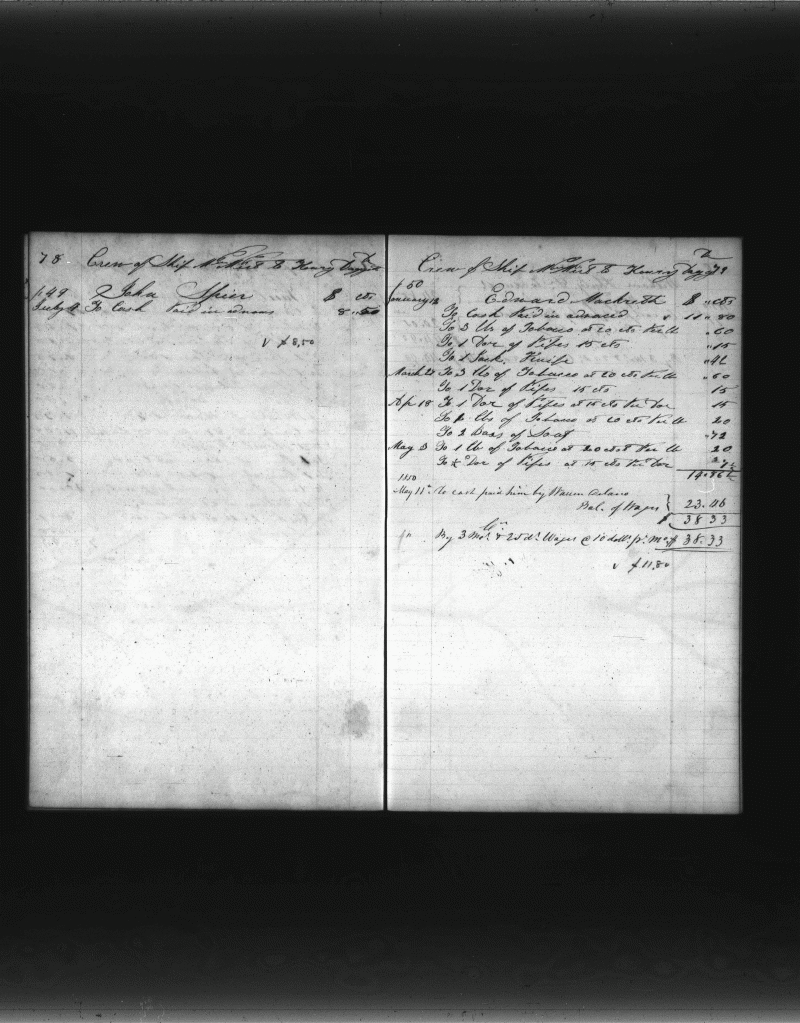 78 Crew of Ship to Henry
p 49 John Spier $ cts
To Cash Paid in advans 8 " 50
√ $ 8,50
Crew of Ship to Henry
50
January 18 Edward Macbeth $ " cts
To Cash Paid in advanced 11 " 80
To 3 lbs of Tobacco at 20 cts the lb " 60
To 1 Doz of Pipes 15 cts " 15
To 1 Jack Knife
March 21 To 3 lbs of Tobacco at 20 cts the lb " 60
To 1 Doz of Pipes 15 cts 15
Apr 18 To 1 Doz of Pipes at 15 cts Per Doz 15
To lbs of Tobacco at 20 cts the lb 20
To 2 Bars of Soap
May 3 To 1 lb of Tobacco at 20 cts the lb 20
To ½ Doz of Pipes at 15 cts the Doz
14.86½
1850
May 11th To cash paid him by Warren Delano
Bal. of Wages 23.46
$ 38 33
Cr
By 3 Mos. & 25 ds. Wages @ 10 dolls pr. Mo. $ 38.33
√ $ 11,80